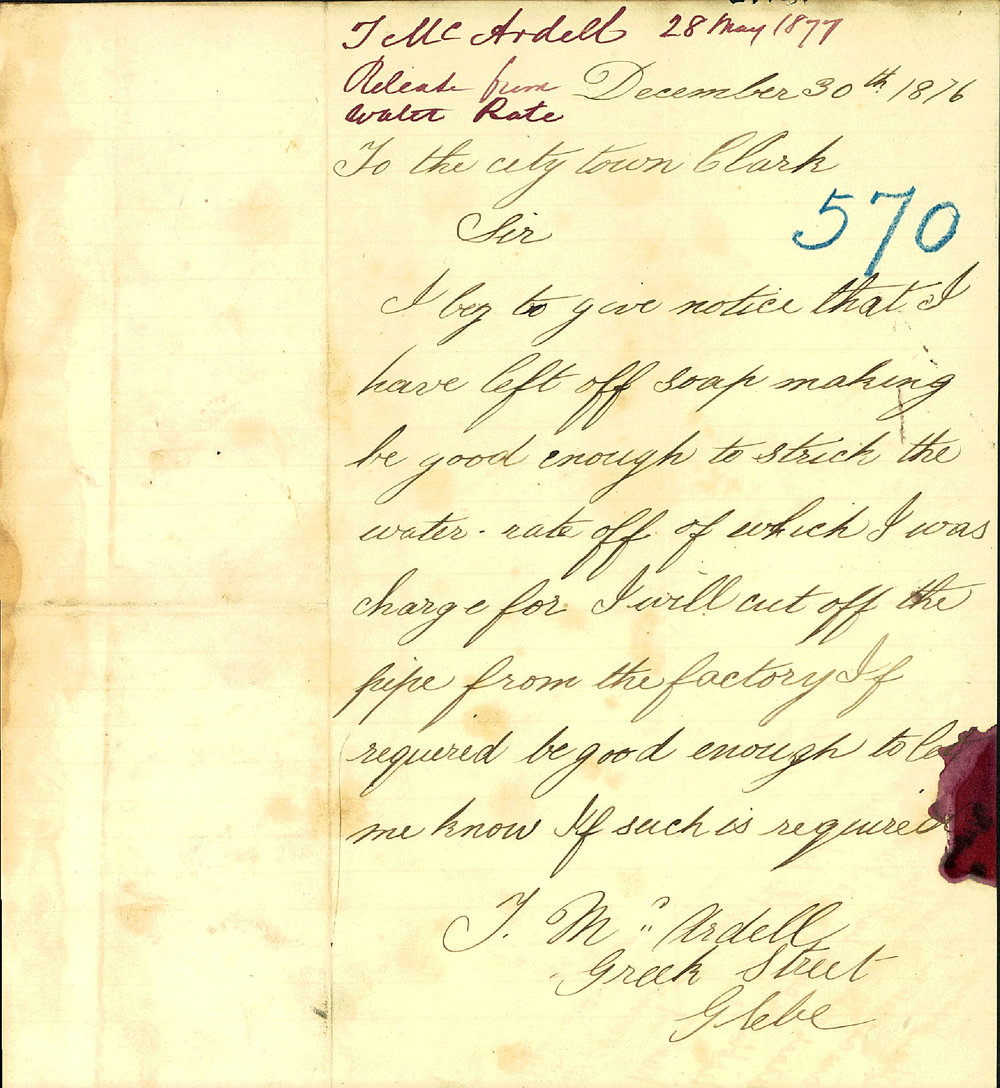 T Mc Ardell 28 May 1877
Release from
Water Rate
December 30th 1876
To the city town Clark
570
Sir
I beg to give notice that I
have left off soap making
be good enough to strick the
water-rate off of which I was
charge for I will cut off the
pipe from the factory If
required be good enough to
me know If such is required
T. Mc Ardell
Greek Street
Glebe